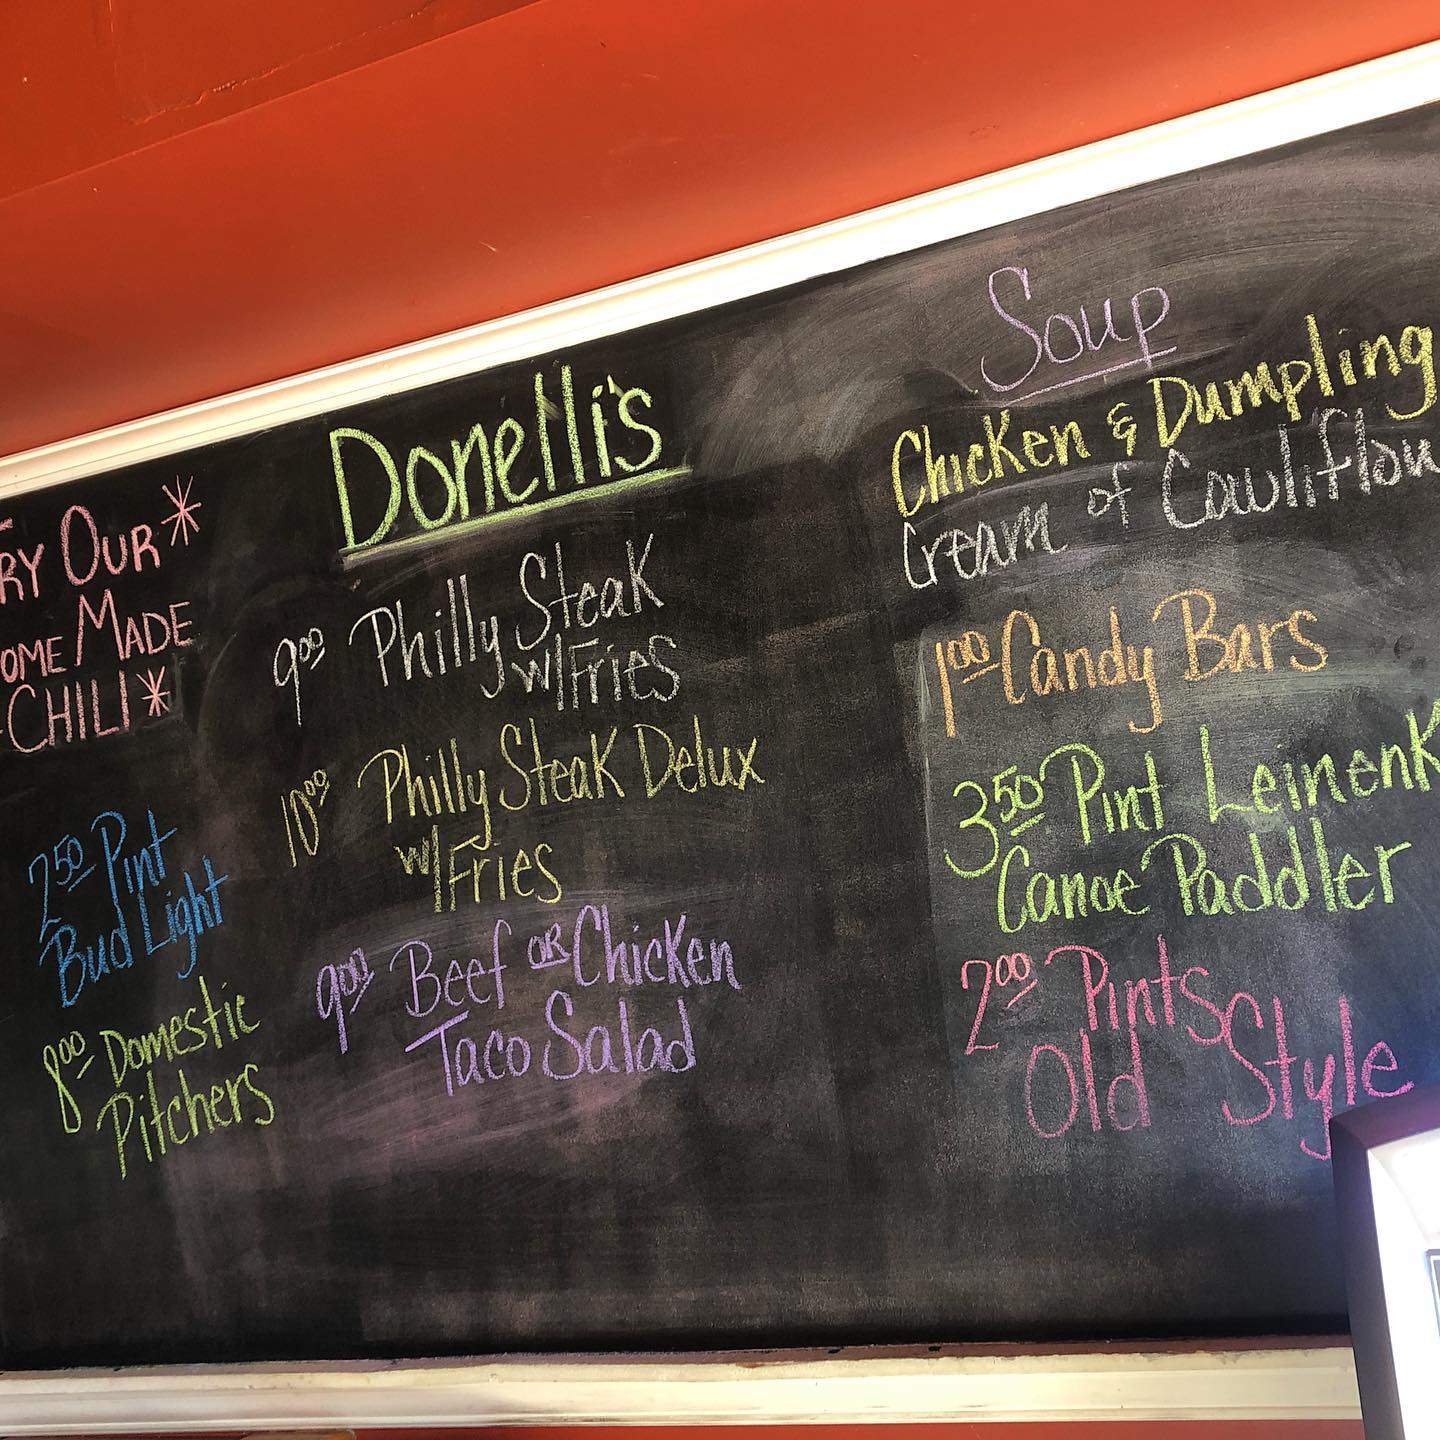 TRY OUR *
HOME MADE
CHILI *
2.50 Pint
Bud Light
8.00 Domestic
Pitchers
Donelli's
9.00 Philly Steak
w/Fries
10.00 Philly Steak Delux
w/Fries
9.00 Beef OR Chicken
Taco Salad
Soup
Chicken & Dumpling
Cream of Cauliflow
1.00 Candy Bars
3.50 Pint LeinenK
Canoe Paddler
2.00 Pints
Old Style